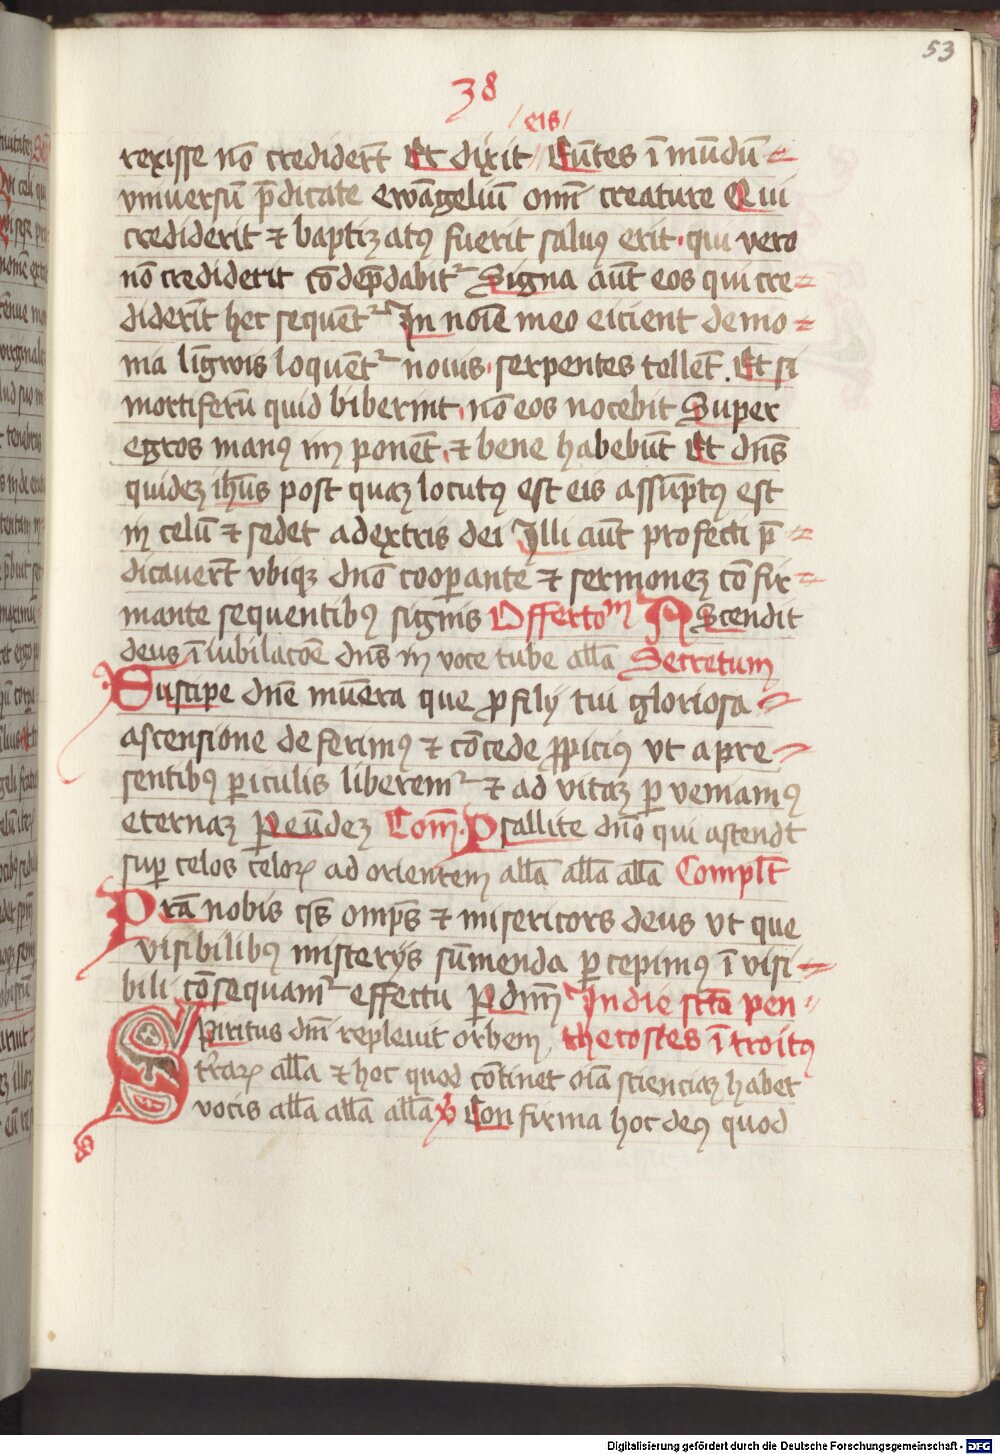 53
38
/eis/
rexisse nō crediderūt Et dixit // Eūtes ī mūdū
vniuersū p̄dicate ewāgeliū omī creature Qui
crediderit ⁊ baptizatꝯ fuerit saluꝯ erit · qui vero
nō crediderit cōdēpnabitᷣ Signa aūt eos qui cre=
diderīt hec sequēt̄ᷣ In noīe meo eicient demo=
nia līgwis loquēt̄ᷣ nouis · serpentes tollēt . Et si
mortiferū quid biberint · nō eos nocebit Super
egros manꝯ in ponēt · ⁊ bene habebūt Et dn̄s
quideꝫ ih̄us post quaꝫ locutꝯ est eis assūptꝯ est
in celū ⁊ sedet adextris dei Illi aūt profecti p̄=
dicauerūt vbiqꝫ dn̄o cooꝑante ⁊ sermoneꝫ cōfir=
mante sequentibꝯ signis Offertoᷣm Ascendit
deus ī iubilacōe dn̄s in voce tube all̄a Secretum
Suscipe dn̄e mūera que ꝓ filij tui gloriosa
ascensione deferimꝯ ⁊ cōcede ꝓpiciꝯ vt a pre=
sentibꝯ ꝑiculis liberemᷣ ⁊ ad vitaꝫ ꝑueniamꝯ
eternaꝫ Per eūdeꝫ Com̄. Psallite dn̄o qui ascendt
suꝑ celos celoꝝ ad orientem all̄a all̄a all̄a Compl̄t
Prā nobis qs̄ omp̄s ⁊ misericors deus vt que
visibilibꝯ misterijs sūmenda ꝑcepimꝯ ī visi=
bili cōsequamᷣ effectu P dn̄m In die sct̄a pen=
Spiritus dn̄i repleuit orbem thecostes ītroitꝯ
t̄raꝝ all̄a ⁊ hoc quod cōtinet oīa scienciaꝫ habet
vocis all̄a all̄a all̄a ℣ Confirma hoc deꝯ quod
Digitalisierung gefördert durch die Deutsche Forschungsgemeinschaft - DFG